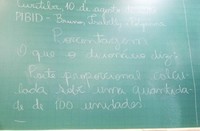 Curitiba, 10 de agosto
PIBID - Bruna,
Porcentagem
O que o dicionário diz?
Parte proporcional calcu-
lada sobre uma quantida-
de de 100 unidades